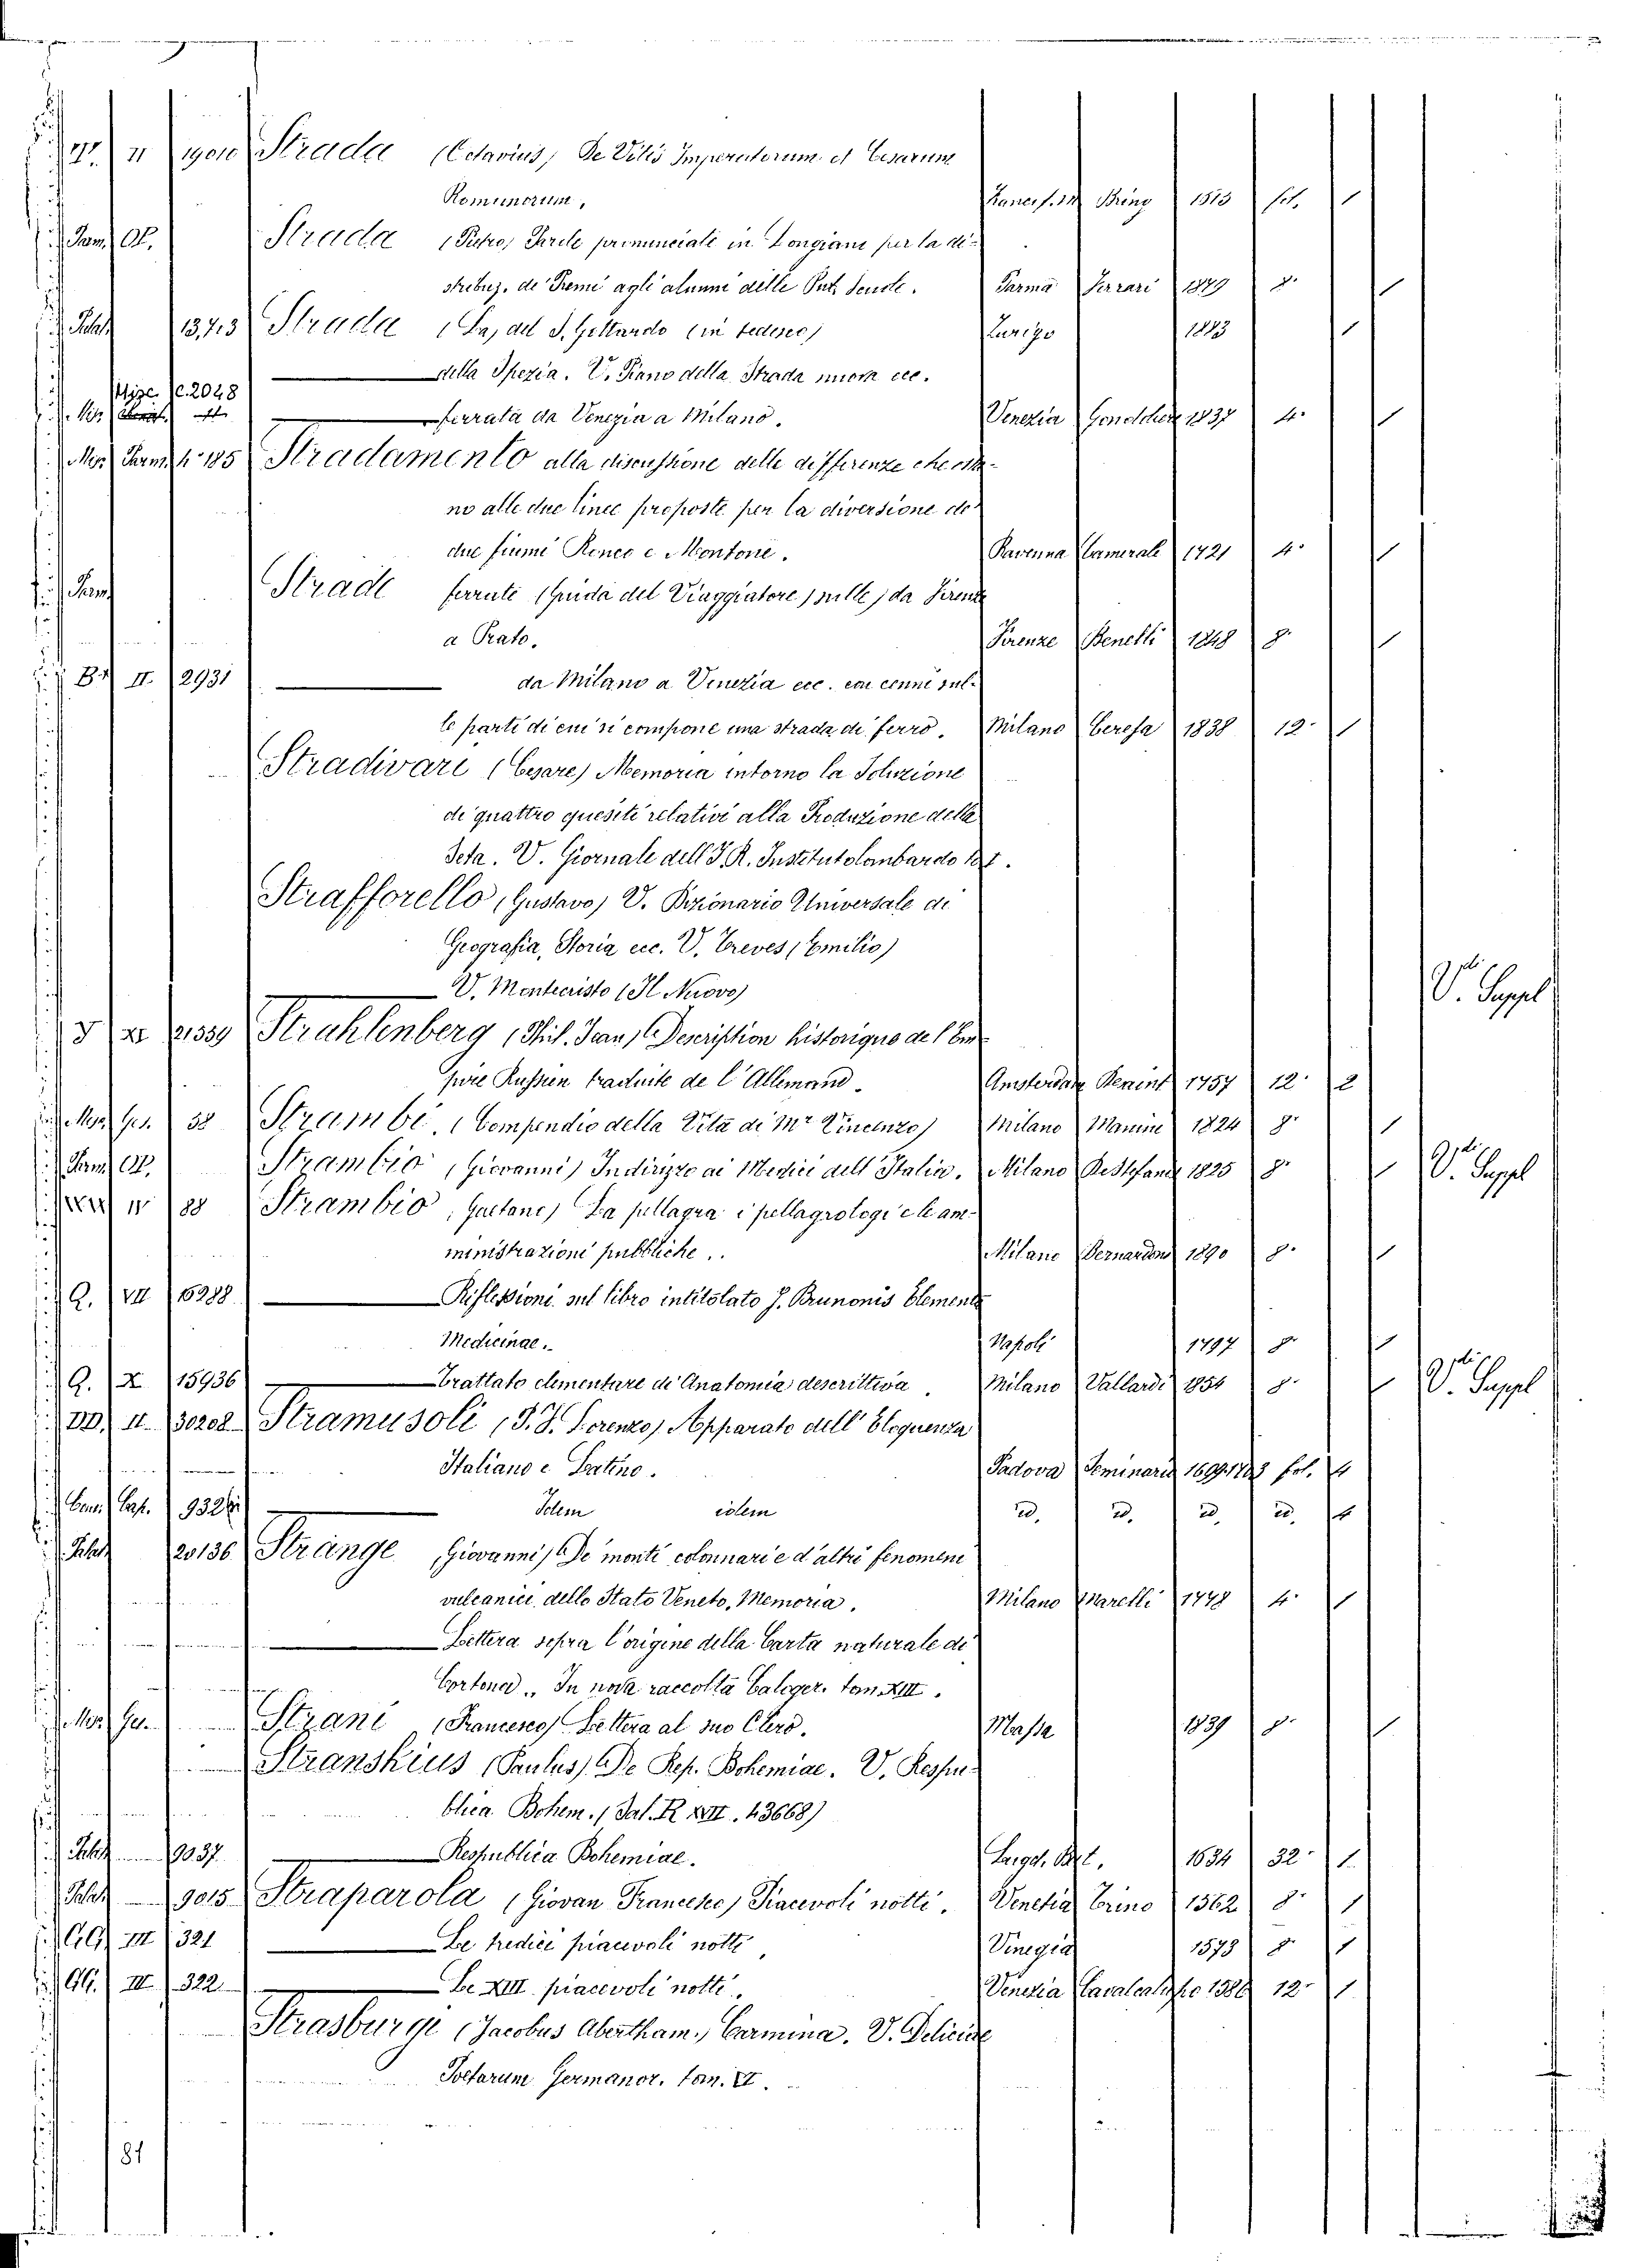 II Strada (Octavius) De Vitis Imperatorum et Cesarum
Romanorum, 1615 fol. 1
Strada (Pietro) Parole pronunciate in Longiano per la di-
stribuz. de' Premi agli alunni delle Pub. Scuole. Parma Ferrari 1879 8° 1
13713 Strada (La) del S. Gottardo (in tedesco) Zurigo 1883 1
della Spezia. V. Piano della Strada nuova ecc.
Misc. C. 2048
ferrata da Venezia a Milano. Venezia Gondoliere 1837 4° 1
185 Stradamento alla discussione delle differenze che osta-
no alle due linee proposte per la diversione de'
due fiumi Ronco e Montone. Ravenna Camerale 1721 4° 1
Strade ferrate (Guida del Viaggiatore sulle) da Firenze
a Prato. Firenze Benelli 1848 8° 1
B II. 2931 da Milano a Venezia ecc. con cenni sul-
le parti di cui si compone una strada di ferro. Milano Ceresa 1838 12° 1
Stradivari (Cesare) Memoria intorno la Soluzione
di quattro quesiti relativi alla Produzione della
Seta. V. Giornale dell'I. R. Instituto Lombardo
Strafforello (Gustavo) V. Dizionario Universale di
Geografia, Storia ecc. V. Treves (Emilio)
V. Montecristo (Il Nuovo) V. Suppl
Strahlenberg (Phil. Jean) Description historique de l'Em-
pire Russien traduite de l'Allemand. Amsterdam 1757 12° 2
58 Strambi (Compendio della Vita di Mr Vincenzo) Milano Manini 1824 8° 1
Strambio (Giovanni) Indirizzo ai Medici dell'Italia. Milano 1825 8° 1 V. Suppl
88 Strambio (Gaetano) La pellagra i pellagrologi e le am-
ministrazioni pubbliche. Milano Bernardoni 1890 8° 1
Q. VII 15988 Riflessioni sul libro intitolato J. Brunonis Elementa
Medicinae. Napoli 1797 8° 1
Q. X 15936 Trattato elementare di Anatomia descrittiva. Milano Vallardi 1854 8° 1 V. Suppl
II. Stramusoli (P. F. Lorenzo) Apparato dell'Eloquenza
Italiano e Latino. Padova Seminario fol. 4
932 Idem idem id. id. id. id. 4
20136 Strange (Giovanni) De' monti colonnari e d'altri fenomeni
vulcanici dello Stato Veneto, Memoria. Milano Marelli 1778 4° 1
Lettera sopra l'origine della Carta naturale di
Cortona. In nova raccolta Caloger. tom. XIII.
Strani (Francesco) Lettera al suo Clero. Massa 1839 8° 1
Stranskius (Paulus) De Rep. Bohemiae. V. Respu-
blica Bohem. (Sal. R XVII. 43668)
Respublica Bohemiae. Lugd. Bat. 1634 32° 1
9015 Straparola (Giovan Francesco) Piacevoli notti. Venetia Trino 1562 8° 1
III 321 Le tredici piacevoli notti Vinegia 1573 8° 1
III 322 Le XIII piacevoli notti. Venezia 1586 12° 1
Strasburgi (Jacobus Abertham.) Carmina. V. Deliciae
Poetarum Germanor. tom. VI.
81